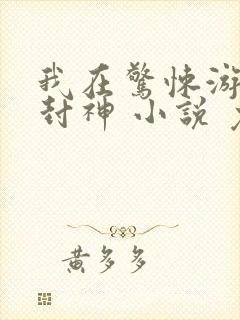 我在驚悚游
封神 小說
黃多多